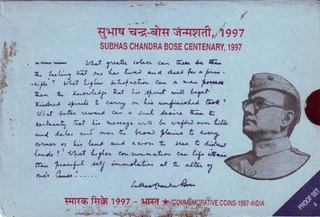 सुभाष चन्द्र बोस जन्मशती, 1997
SUBHAS CHANDRA BOSE CENTENARY, 1997
What greater solace can there be than
the feeling that one has lived and died for a prin-
ciple? What higher satisfaction can a man possess
than the knowledge that his spirit will beget
kindred spirits to carry on his unfinished task?
What better reward can a soul desire than the
certainty that his message will be wafted over hills
and dales and over the broad plains to every
corner of his land and across the sea to distant
lands? What higher consummation can life attain
than peaceful self immolation at the altar of
one's Cause?
Subhas Chandra Bose
स्मारक सिक्के 1997 - भारत ★ COMMEMORATIVE COINS 1997-INDIA
PROOF SET